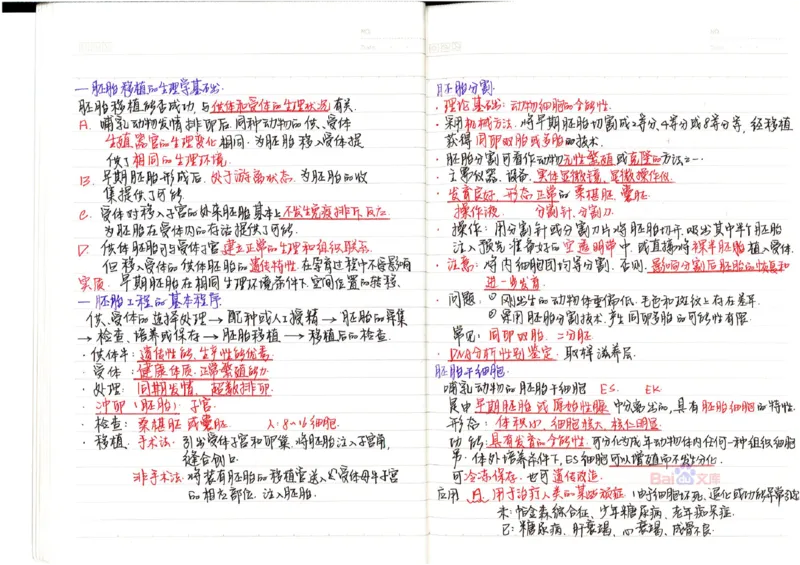 一 胚胎移植的生理学基础.
胚胎移植能否成功,与供体和受体的生理状况有关.
A. 哺乳动物发情排卵后,同种动物的供、受体
生殖器官的生理变化相同.为胚胎移入受体提
供了相同的生理环境.
B. 早期胚胎形成后,处于游离状态.为胚胎的收
集提供了可能
C. 受体对移入子宫的外来胚胎基本上不发生免疫排斥反应
为胚胎在受体内的存活提供了可能.
D. 供体胚胎可与受体子宫建立正常的生理和组织联系
但移入受体的供体胚胎的遗传特性,在孕育过程中不受影响
实质: 早期胚胎在相同生理环境条件下空间位置的转移.
一 胚胎工程的基本程序
供、受体的选择处理→配种或人工授精→胚胎的收集
→检查、培养或保存→胚胎移植→移植后的检查.
· 供体牛: 遗传性能、生产性能优秀.
· 受体: 健康体质、正常繁殖能力.
· 处理: 同期发情、超数排卵.
· 冲卵(胚胎): 子宫.
· 检查: 桑椹胚或囊胚. 人:8~16细胞.
· 移植: 手术法: 引出受体子宫和卵巢,将胚胎注入子宫角,
缝合创口.
非手术法: 将装有胚胎的移植管送入受体母牛子宫
的相应部位,注入胚胎.
胚胎分割.
· 理论基础: 动物细胞的全能性.
· 采用机械方法.将早期胚胎切割成2等分、4等分或8等分等,经移植
获得同卵双胎或多胎的技术.
· 胚胎分割可看作动物无性繁殖或克隆的方法之一.
· 主要仪器、设备: 实体显微镜、显微操作仪.
· 发育良好、形态正常的桑椹胚、囊胚.
操作液. 分割针、分割刀.
· 操作: 用分割针或分割刀片将胚胎切开,吸出其中半个胚胎
注入预先准备好的空透明带中,或直接将裸半胚胎植入受体.
· 注意: 将内细胞团均等分割.否则,影响分割后胚胎的恢复和
进一步发育.
· 问题: ①刚出生的动物体重偏低,毛色和斑纹上存在差异.
②采用胚胎分割技术,产生同卵多胎的可能性有限.
常见: 同卵双胎、二分胚.
· DNA分析性别鉴定: 取样滋养层.
胚胎干细胞.
哺乳动物的胚胎干细胞 ES. EK
是由早期胚胎或原始性腺中分离出的,具有胚胎细胞的特性.
形态: 体积小、细胞核大、核仁明显.
功能: 具有发育的全能性,可分化为成年动物体内任何一种组织细胞
另:体外培养条件下,ES细胞可以增殖而不发生分化.
可冷冻保存,也可遗传改造.
Bai 文库
应用 A. 用于治疗人类的某些顽症.(由于细胞坏死、退化或功能异常引起
未: 帕金森综合征、少年糖尿病、老年痴呆症.
已: 糖尿病、肝衰竭、心衰竭、成骨不良.